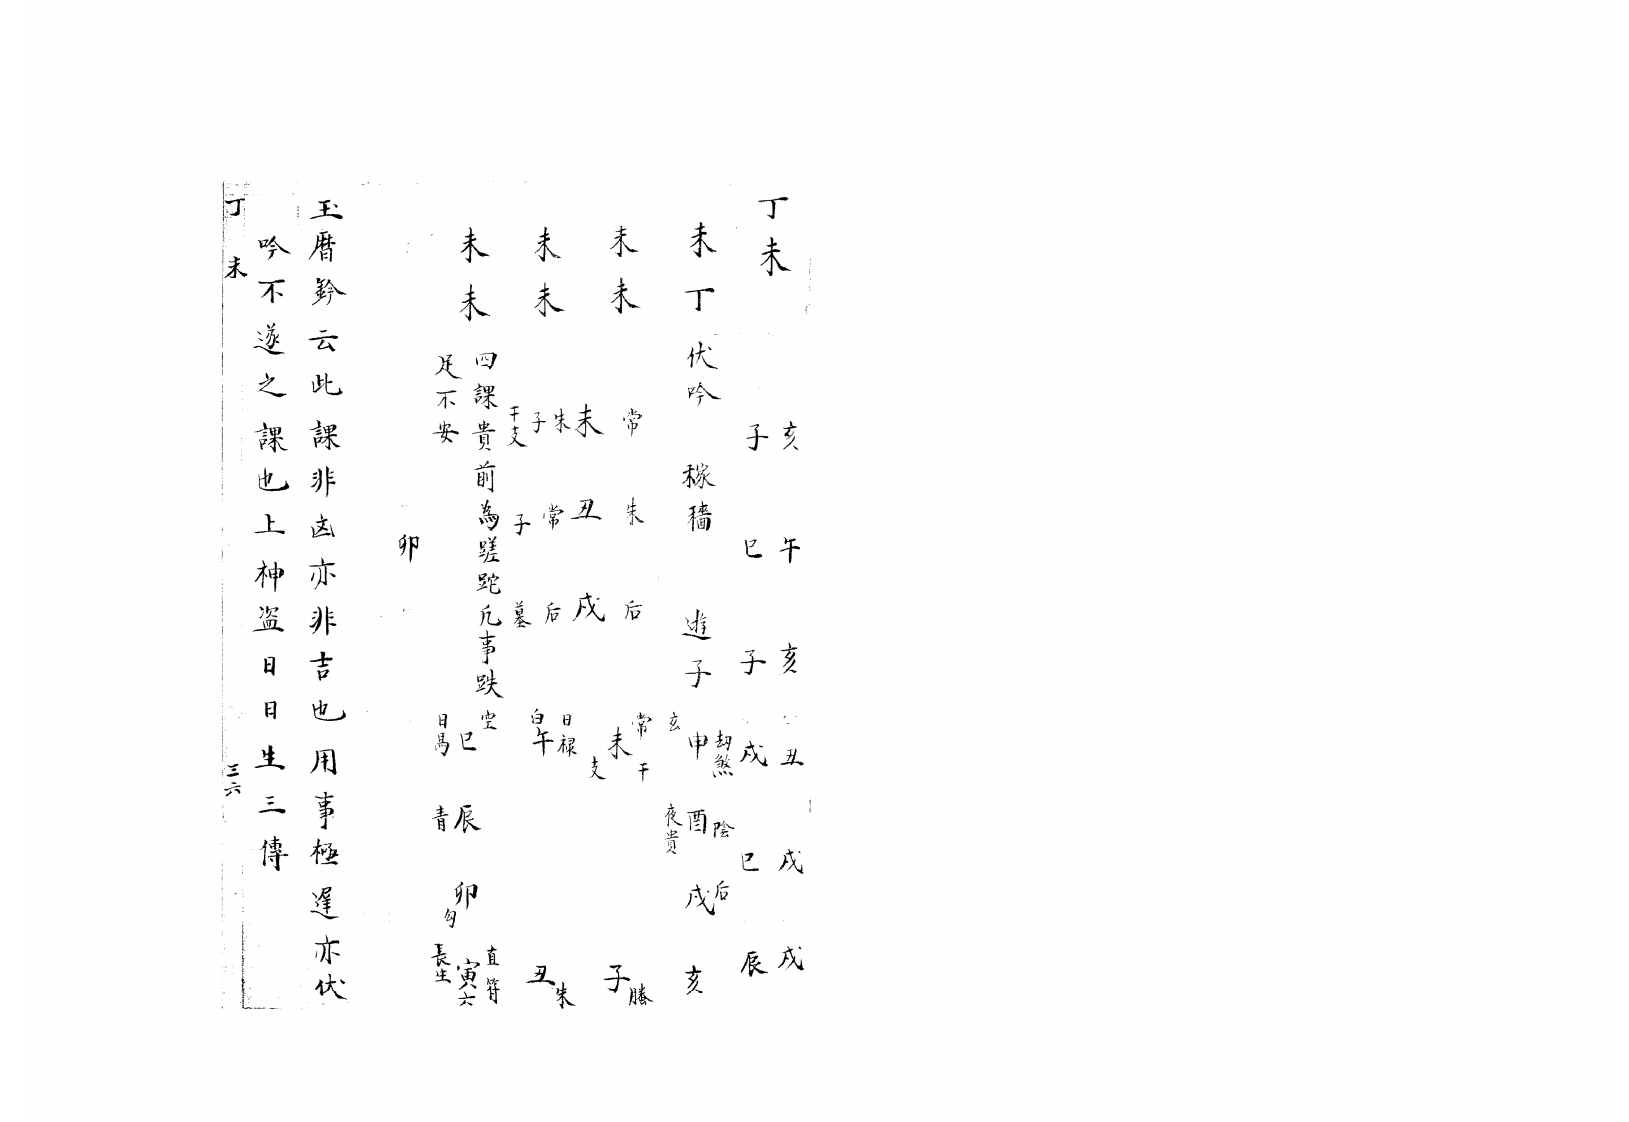 丁未
亥 午 亥 丑 戌 戌
子 巳 子 戌 巳 辰
未丁 伏吟 稼穡 遊子
未未
未未
未未
常 朱 后
未 丑 戌
朱 常 后
子 子 墓
干支
四課貴前為蹉跎凡事跌
足不安
劫煞 陰 后
申 酉 戌 亥
玄 夜貴
常 干
未 子
支 螣
日禄
午 丑
白 朱
空 直符
巳 辰 卯 寅
日馬 青 勾 六
長生
卯
玉暦鈐云此課非凶亦非吉也用事極遲亦伏
吟不遂之課也上神盗日日生三傳
丁未 三六